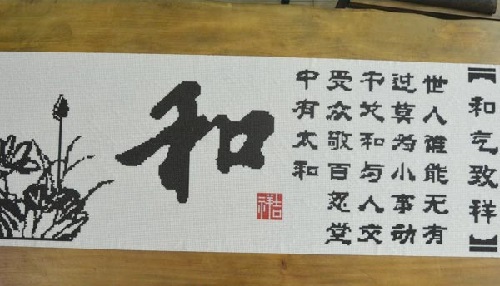 和气致祥
世人谁能无有
过莫为小事动
干戈和与人交
受众敬百忍堂
中有太和
和
吉祥